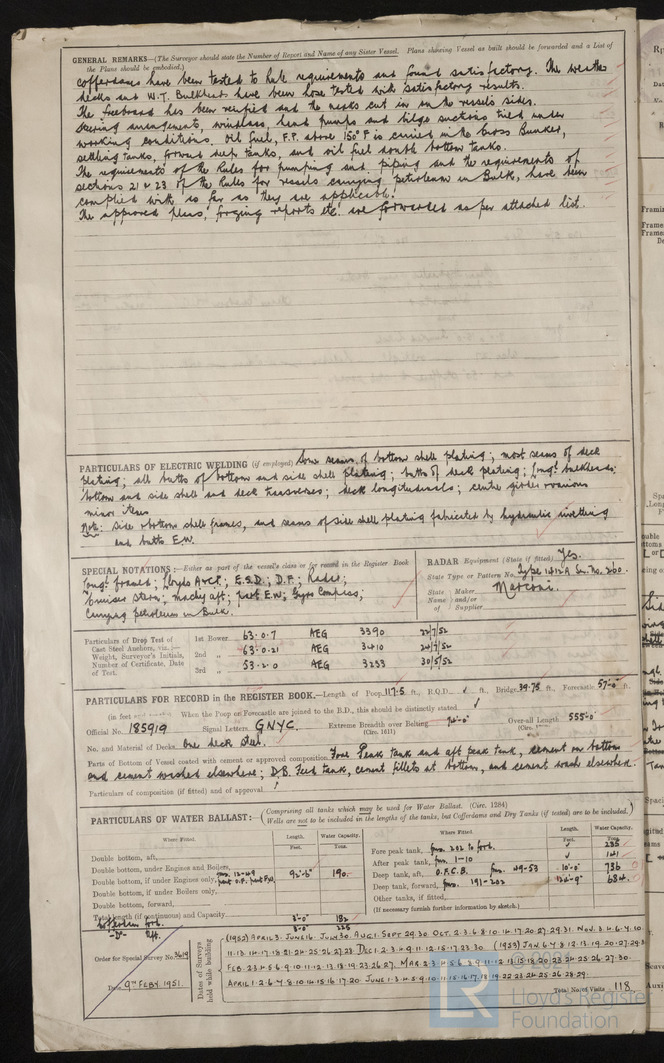 GENERAL REMARKS—(The Surveyor should state the Number of Report and Name of any Sister Vessel. Plans showing Vessel as built should be forwarded and a List of
the Plans should be embodied.)
cofferdams have been tested to Rule requirements and found satisfactory. The weather
decks and W.T. Bulkheads have been hose tested with satisfactory results.
The freeboard has been verified and the marks cut in on the vessel's sides.
Steering arrangement, windlass, hand pumps and bilge suctions tried under
working conditions. Oil fuel, F.P. above 150°F is carried in the Cross Bunker,
settling tanks, forward deep tanks, and oil fuel double bottom tanks.
The requirements of the Rules for pumping and piping and the requirements of
sections 21 & 23 of the Rules for vessels carrying petroleum in Bulk, have been
complied with so far as they are applicable.
The approved plans, forging reports etc. are forwarded as per attached list.
PARTICULARS OF ELECTRIC WELDING (if employed) Some seams of bottom shell plating; most seams of deck
plating; all butts of bottom and side shell plating; butts of deck plating; longl. bulkheads;
bottom and side shell and deck transverses; deck longitudinals; centre girder various
minor items
Note: Side & bottom shell frames, and seams of side shell plating fabricated by hydraulic rivetting
and butts E.W.
SPECIAL NOTATIONS:—Either as part of the vessel's class or for record in the Register Book
Longl. framed; Lloyds A&CP; E.S.D; D.F; Radar;
Cruiser Stern; Machy aft; part E.W; Gyro Compass;
Carrying petroleum in Bulk.
RADAR Equipment (State if fitted) Yes.
State Type or Pattern No. Type 1412A Se. No. 260.
State Name Maker and/or of Supplier Marconi.
Particulars of Drop Test of Cast Steel Anchors, viz.:— Weight, Surveyor's Initials, Number of Certificate, Date of Test.
1st Bower 63.0.7 AEG 3390 22/7/52
2nd „ 63.0.21 AEG 3410 24/7/52
3rd „ 53.2.0 AEG 3233 30/5/52
PARTICULARS FOR RECORD in the REGISTER BOOK.—Length of Poop 117.5 ft., R.Q.D. ft., Bridge 39.75 ft., Forecastle 57-0 ft.
When the Poop or Forecastle are joined to the B.D., this should be distinctly stated
Official No. 185919 Signal Letters GNYC. Extreme Breadth over Belting (Circ. 1611) Over-all Length 555-0"
No. and Material of Decks One deck steel.
Parts of Bottom of Vessel coated with cement or approved composition Fore Peak tank and aft peak tank, cement on bottom
and cement washed elsewhere; D.B. Feed tank, cement fillets at bottom, and cement wash elsewhere.
Particulars of composition (if fitted) and of approval
PARTICULARS OF WATER BALLAST:—(Comprising all tanks which may be used for Water Ballast. (Circ. 1284)
Wells are not to be included in the lengths of the tanks, but Cofferdams and Dry Tanks (if tested) are to be included.)
Where Fitted. Length. Feet. Water Capacity. Tons.
Double bottom, aft,
Double bottom, under Engines and Boilers,
Double bottom, if under Engines only, frms. 12-49 92'-6" 190.
Double bottom, if under Boilers only,
Double bottom, forward,
Total length (if continuous) and Capacity
Cofferdam ford. 3'-0" 182
-Do- Aft. 3'-0" 225
Where Fitted. Length. Feet. Water Capacity. Tons.
Fore peak tank, frms. 202 to ford. 235
After peak tank, frms. 1-10 141
Deep tank, aft, O.F.C.B. frms. 49-53 10'-0" 736
Deep tank, forward, frms. 191-202 684
Other tanks, if fitted,
(If necessary furnish further information by sketch.)
Order for Special Survey No. 3619
Date 9TH FEBY. 1951.
Dates of Surveys held while building
(1952) APRIL 3. JUNE 16. JULY 30. AUG 1. SEPT 29.30. OCT. 2.3.6.8.10.14.17.20.27.29.31. NOV. 3.4.6.7.10
11.13.14.17.18.21.24.25.26.27.28 DEC 1.2.3.4.9.11.12.15.17.23.30. (1953) JAN 6.7.8.12.13.19.20.27.29.
FEB. 2.3.4.5.6.9.10.11.12.13.18.19.23.26.27. MAR 2.3.4.5.6.9.11.12.13.18.20.23.24.25.26.27.30.
APRIL 1.2.6.7.8.10.14.15.16.17.20. JUNE 1.3.4.5.9.10.11.15.16.17.18.19.22.23.24.25.26.28.29.
Total No. of Visits 118
LR
Lloyd's Register
Foundation